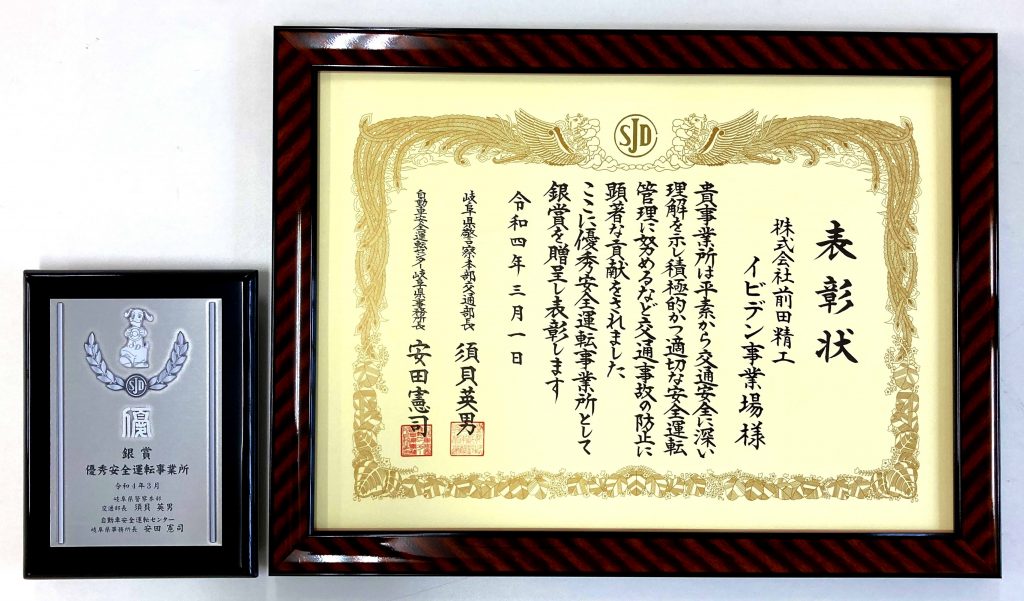 SJD
表彰状
株式会社前田精工
イビデン事業場様
貴事業所は平素から交通安全に深い
理解を示し積極的かつ適切な安全運転
管理に努めるなど交通事故の防止に
顕著な貢献をされました
ここに優秀安全運転事業所として
銀賞を贈呈し表彰します
令和四年三月一日
岐阜県警察本部交通部長 須貝英男
自動車安全運転センター岐阜県事務所長 安田憲司
SJD
優
銀賞
優秀安全運転事業所
令和4年3月
岐阜県警察本部
交通部長 須貝 英男
自動車安全運転センター
岐阜県事務所長 安田 憲司